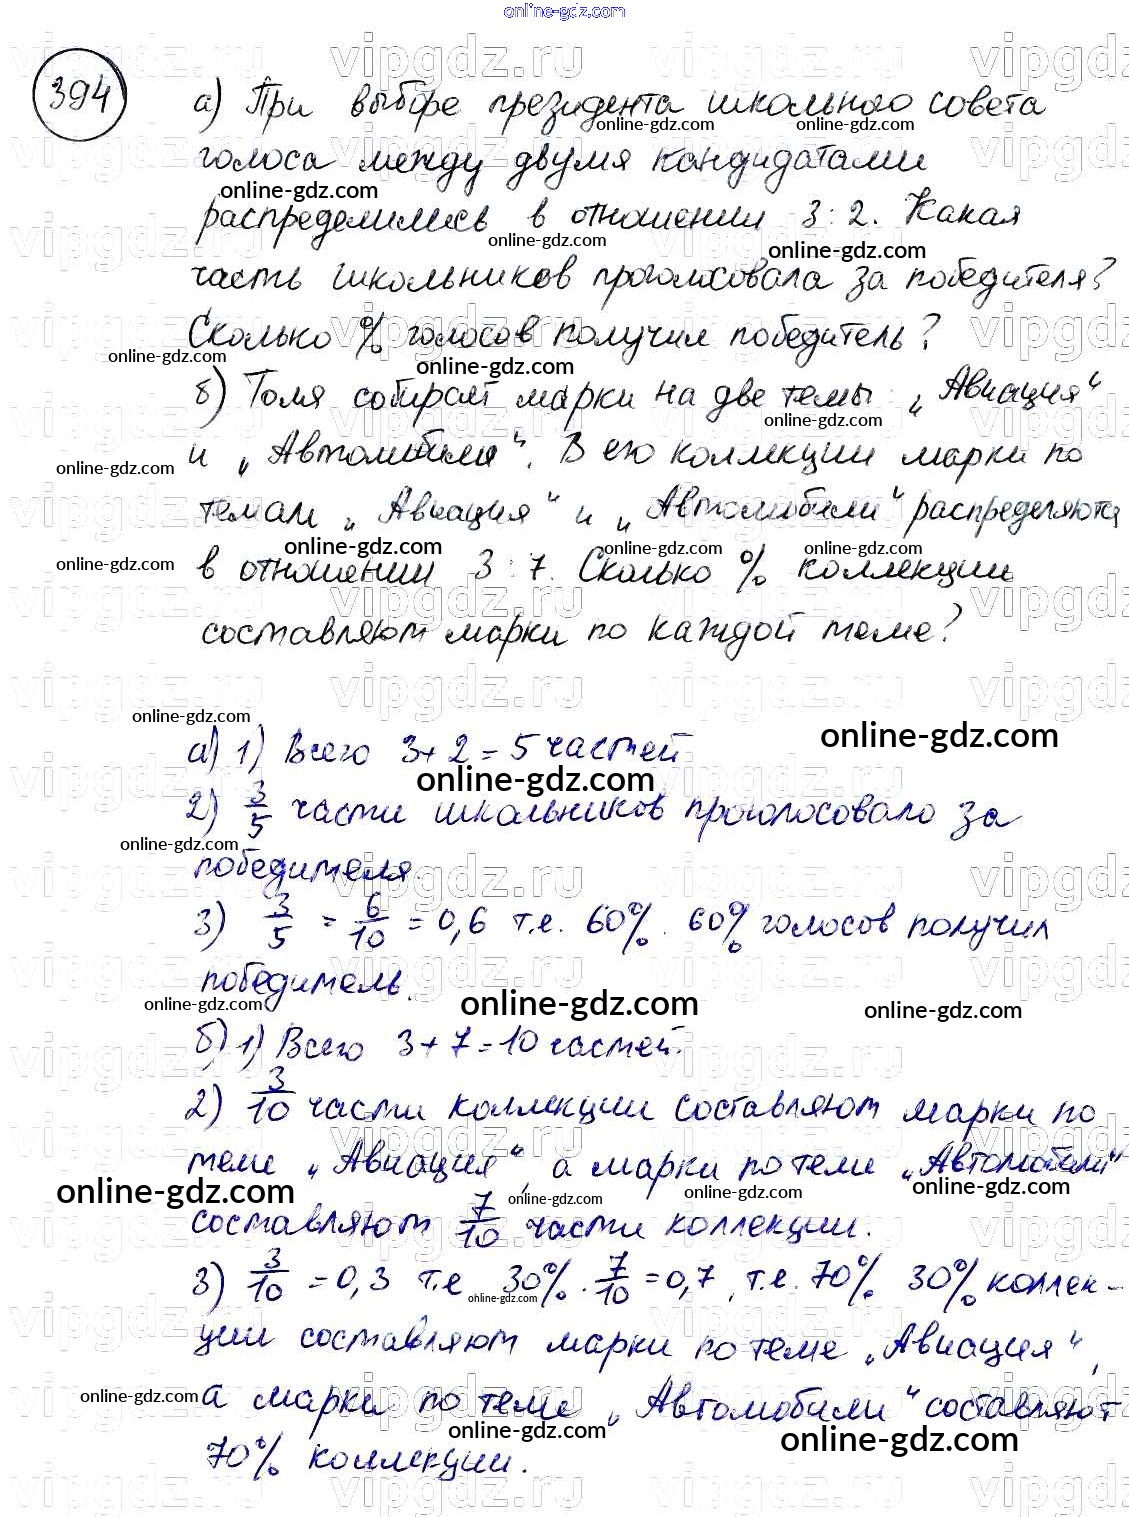 online-gdz.com
394
а) При выборе президента школьного совета
голоса между двумя кандидатами
распределились в отношении 3:2. Какая
часть школьников проголосовала за победителя?
Сколько % голосов получил победитель?
б) Толя собирает марки на две темы: „Авиация“
и „Автомобили“. В его коллекции марки по
темам „Авиация“ и „Автомобили“ распределяются
в отношении 3:7. Сколько % коллекции
составляют марки по каждой теме?
а) 1) Всего 3+2=5 частей
2) 3/5 части школьников проголосовало за
победителя.
3) 3/5 = 6/10 = 0,6 т.е. 60%. 60% голосов получил
победитель.
б) 1) Всего 3+7=10 частей.
2) 3/10 части коллекции составляют марки по
теме „Авиация“, а марки по теме „Автомобили“
составляют 7/10 части коллекции.
3) 3/10 = 0,3 т.е 30%. 7/10 = 0,7, т.е. 70% 30% коллек-
ции составляют марки по теме „Авиация“,
а марки по теме „Автомобили“ составляют
70% коллекции.